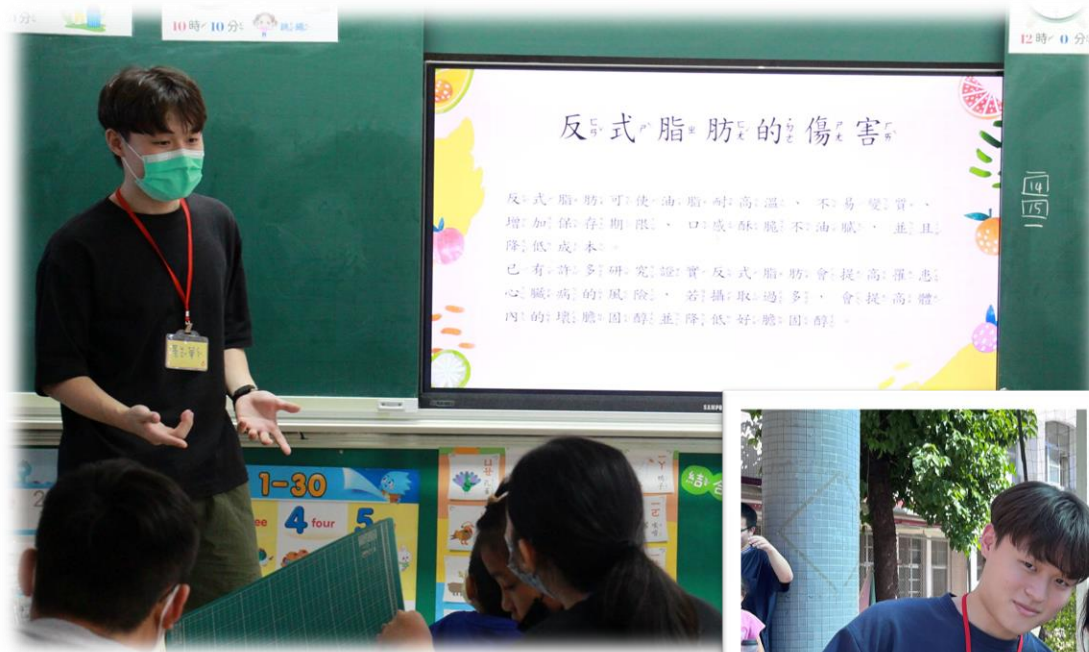 10時 10分 跳繩
12時 0 分
反式脂肪的傷害
反式脂肪可使油脂耐高溫、不易變質、
增加保存期限、口感酥脆不油膩,並且
降低成本。
已有許多研究證實反式脂肪會提高罹患
心臟病的風險,若攝取過多,會提高體
內的壞膽固醇並降低好膽固醇。
14
15
1-30
4 four
5
結合